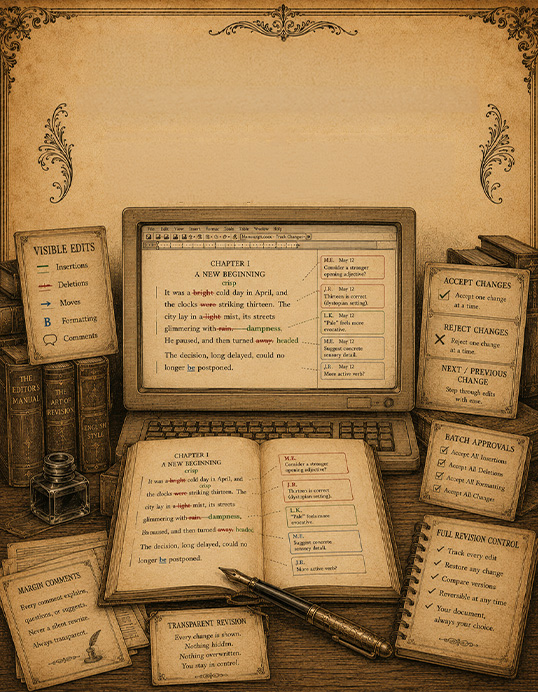 VISIBLE EDITS
Insertions
Deletions
Moves
B Formatting
Comments
File Edit View Insert Format Tools Table Window Help
CHAPTER 1
A NEW BEGINNING
crisp
It was a bright cold day in April, and
the clocks were striking thirteen. The
city lay in a light mist, its streets
glimmering with rain. dampness.
He paused, and then turned away. headed
The decision, long delayed, could no
longer be postponed.
M.E. May 12
Consider a stronger
opening adjective?
J.R. May 12
Thirteen is correct
(dystopian setting).
L.K. May 12
"Pale" feels more
evocative.
M.E. May 12
Suggest concrete
sensory detail.
J.R. May 12
More active verb?
ACCEPT CHANGES
Accept one change
at a time.
REJECT CHANGES
Reject one change
at a time.
NEXT / PREVIOUS
CHANGE
Step through edits
with ease.
THE
EDITOR'S
MANUAL
THE
ART OF
REVISION
ENGLISH
STYLE
BATCH APPROVALS
Accept All Insertions
Accept All Deletions
Accept All Formatting
Accept All Changes
CHAPTER 1
A NEW BEGINNING
crisp
It was a bright cold day in April, and
the clocks were striking thirteen. The
city lay in a light mist, its streets
glimmering with rain. dampness,
He paused, and then turned away. headed
The decision, long delayed, could no
longer be postponed.
M.E.
Consider a stronger
opening adjective?
J.R.
Thirteen is correct
(dystopian setting).
L.K.
"Pale" feels more
evocative.
M.E.
Suggest concrete
sensory detail.
J.R.
More active verb?
FULL REVISION CONTROL
Track every edit
Restore any change
Compare versions
Reversible at any time
Your document,
always your choice.
MARGIN COMMENTS
Every comment explains,
questions, or suggests.
Never a silent rewrite.
Always transparent.
TRANSPARENT REVISION
Every change is shown.
Nothing hidden.
Nothing overwritten.
You stay in control.